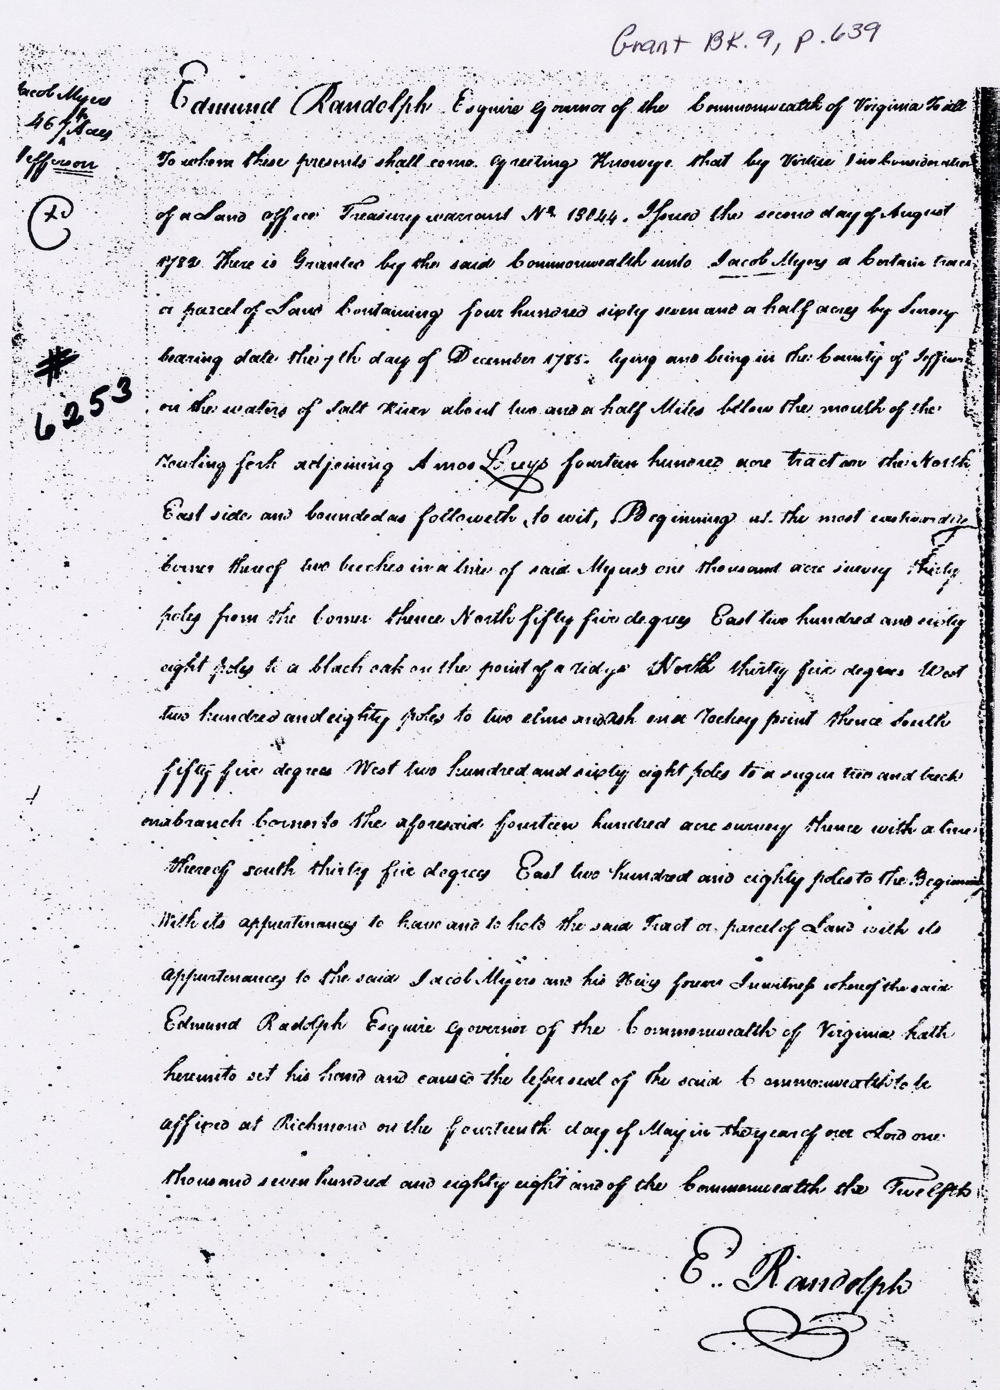 Grant BK. 9, p. 639
Jacob Myers
467½ Acres
Jefferson
# 6253
Edmund Randolph Esquire Governor of the Commonwealth of Virginia To all
To whom these presents shall come Greeting Knowye that by Virtue & in Consideration
of a Land office Treasury warrant No. 13044. Issued the second day of August
1782 There is Granted by the said Commonwealth unto Jacob Myers a Certain tract
or parcel of Land Containing four hundred sixty seven and a half acres by Survey
bearing date the 7th day of December 1785. lying and being in the County of Jefferson
on the waters of Salt River about two and a half Miles bellow the mouth of the
fork adjoining Amos fourteen hundred acre tract on the North
East side and bounded as followeth, to wit, Beginning at the most eastwardly
Corner thereof two beeches in a line of said Myers's one thousand acre survey thirty
poles from the Corner thence North fifty five degrees East two hundred and sixty
eight poles to a black oak on the point of a ridge North thirty five degrees West
two hundred and eighty poles to two elms and ash on a Rockey point thence South
fifty five degrees West two hundred and sixty eight poles to a sugar tree and beech
on a branch Corner to the aforesaid fourteen hundred acre survey thence with a line
thereof south thirty five degrees East two hundred and eighty poles to the Beginning
With its appurtenances to have and to hold the said Tract or parcel of Land with its
appurtenances to the said Jacob Myers and his Heirs forever In witness whereof the said
Edmund Radolph Esquire Governor of the Commonwealth of Virginia hath
hereunto set his hand and caused the lesser seal of the said Commonwealth to be
affixed at Richmond on the fourteenth day of May in the year of our Lord one
thousand seven hundred and eighty eight and of the Commonwealth the Twelfth
E. Randolph